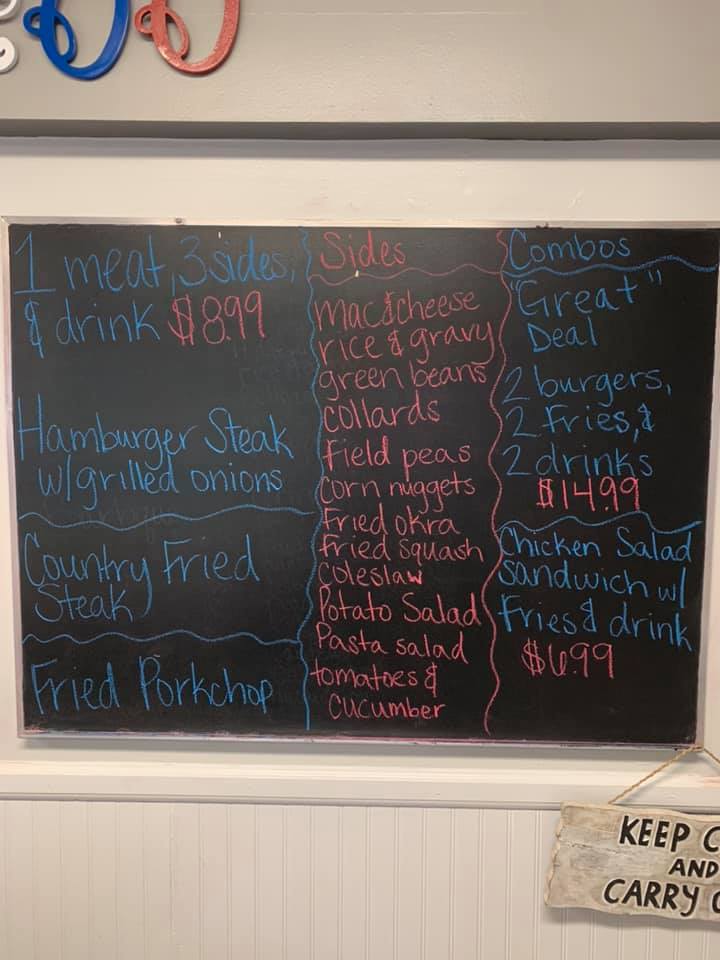 1 meat, 3 sides,
& drink $8.99
Hamburger Steak
w/grilled onions
Country Fried
Steak
Fried Porkchop
Sides
Mac&cheese
rice & gravy
green beans
collards
Field peas
Corn nuggets
Fried okra
Fried Squash
Coleslaw
Potato Salad
Pasta salad
tomatoes &
Cucumber
Combos
"Great"
Deal
2 burgers,
2 Fries, &
2 drinks
$14.99
Chicken Salad
Sandwich w/
Fries & drink
$6.99
KEEP C
AND
CARRY